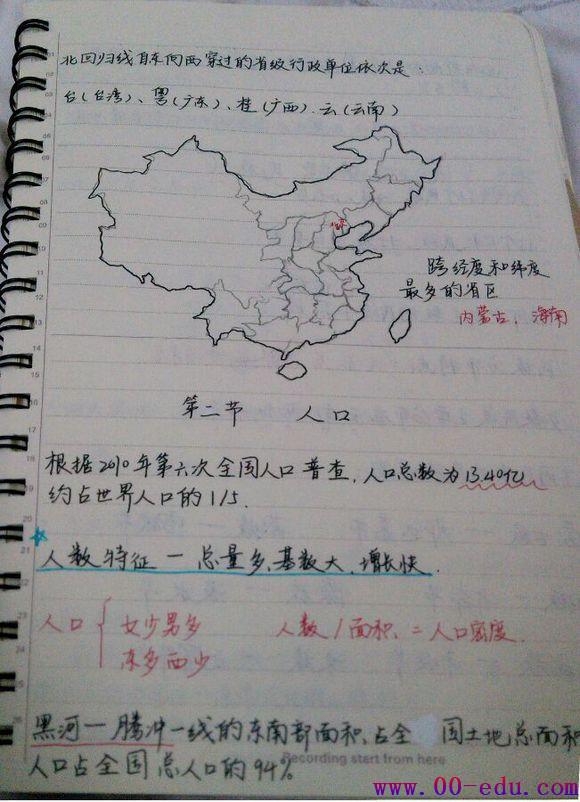 北回归线自东向西穿过的省级行政单位依次是
台(台湾)、粤(广东)、桂(广西).云(云南)
跨经度和纬度
最多的省区
内蒙古、海南
第二节 人口
根据2010年第六次全国人口普查,人口总数为13.40亿
约占世界人口的1/5.
人数特征一总量多、基数大、增长快.
人口 { 女少男多 人数/面积=人口密度.
东多西少
黑河一腾冲一线的东南部面积占全 国土地总面积
Recording start from here
人口占全国总人口的94%
www.00-edu.com